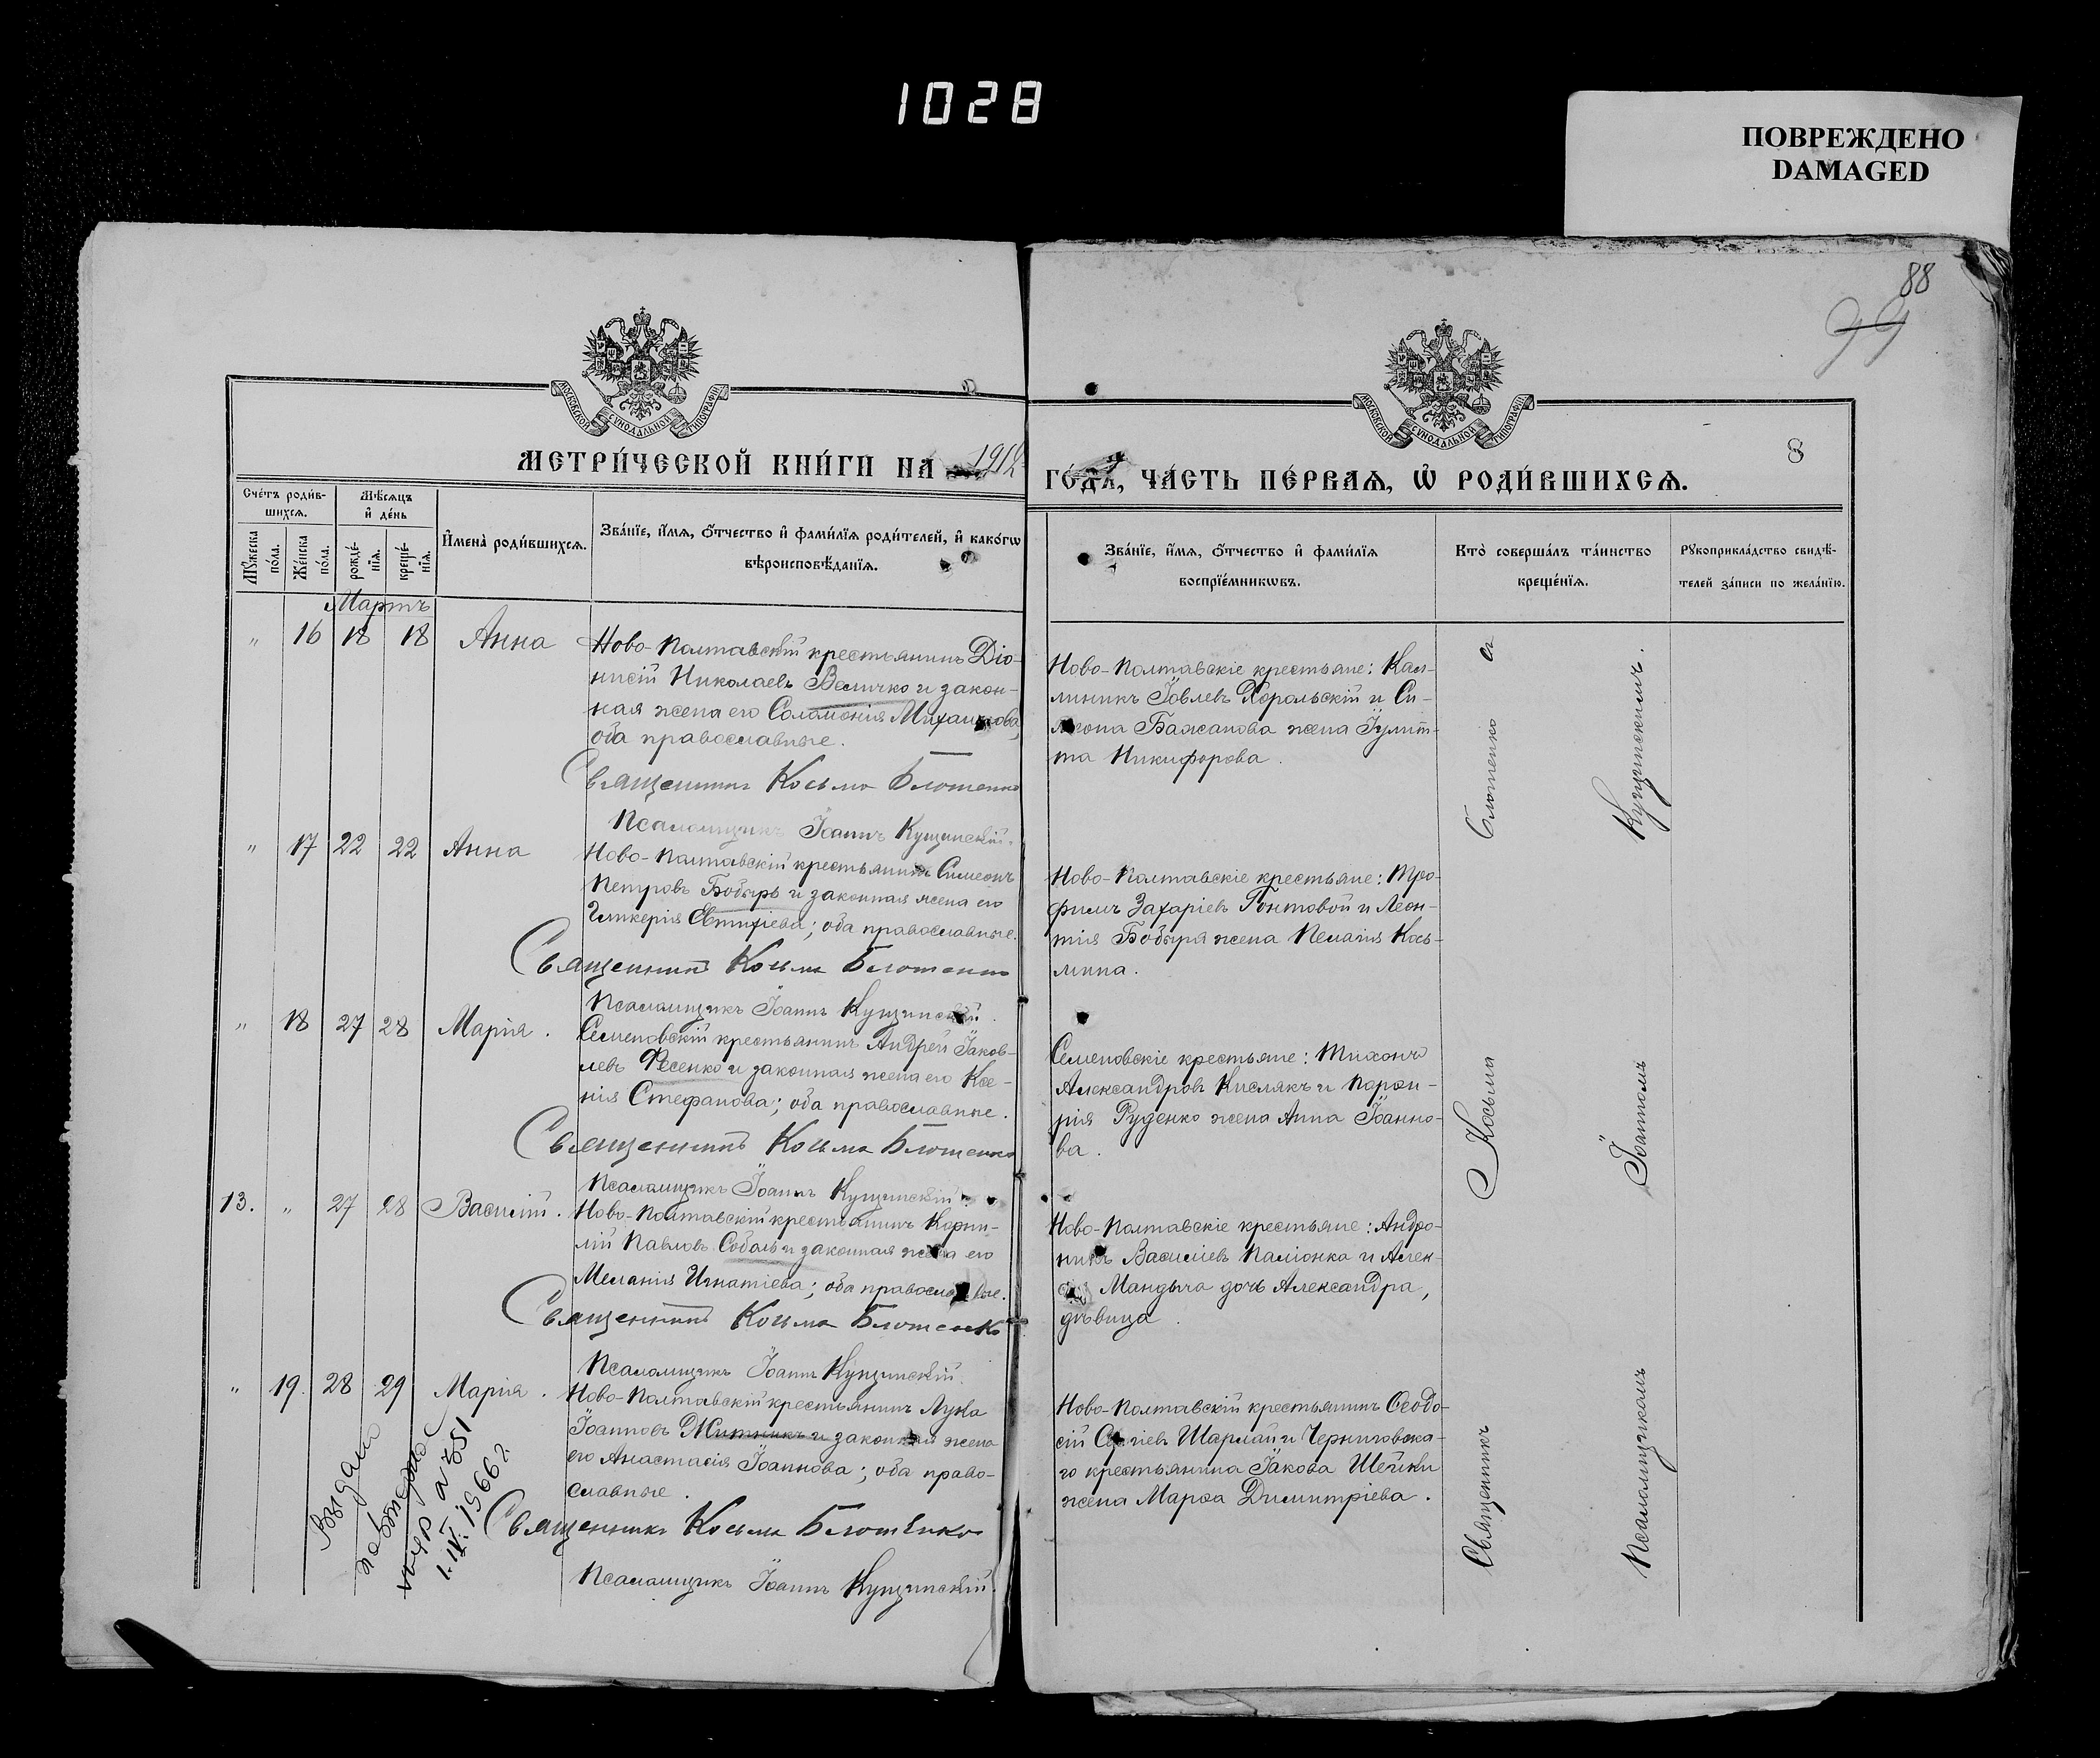 1028
ПОВРЕЖДЕНО
DAMAGED
88
99
МОСКОВСКОЙ СѴНОДАЛЬНОЙ ТИПОГРАФІИ
МОСКОВСКОЙ СѴНОДАЛЬНОЙ ТИПОГРАФІИ
8
МЕТРИ́ЧЕСКОЙ КНИ́ГИ НА 1912
ГО́ДА, ЧА́СТЬ ПЕ́РВАѦ, Ѡ҆ РОДИ́ВШИХСѦ.
Сче́тъ роди́в-
шихсѧ.
Мѣ́сѧцъ
и҆ де́нь
Мꙋ́жеска
по́ла.
Же́нска
по́ла.
рожде́-
нїѧ.
креще́-
нїѧ.
И҆мена̀ роди́вшихсѧ.
Зва́нїе, и҆́мѧ, ѻ҆́тчество и҆ фами́лїѧ роди́телей, и҆ како́гѡ
вѣроисповѣ́данїѧ.
Зва́нїе, и҆́мѧ, ѻ҆́тчество и҆ фами́лїѧ
воспрїе́мникѡвъ.
Кто̀ соверша́лъ та́инство
креще́нїѧ.
Рꙋкоприкла́дство свидѣ́-
телей за́писи по жела́нїю.
Мартъ
" 16 18 18 Анна
Ново-Полтавскій крестьянинъ Діо-
нисій Николаевъ Величко и закон-
ная жена его Соломонія Михаилова,
оба православные.
Священникъ Косьма Блошенко
Псаломщикъ Іоаннъ Кущинскій.
Ново-Полтавскіе крестьяне: Кал-
линикъ Іовлевъ Хорольскій и Си-
мона Бажанова жена Іулит-
та Никифорова.
" 17 22 22 Анна
Ново-Полтавскій крестьянинъ Симеонъ
Петровъ Бобырь и законная жена его
Гликерія Евтихіева; оба православные.
Священникъ Косьма Блошенко
Псаломщикъ Іоаннъ Кущинскій.
Ново-Полтавскіе крестьяне: Тро-
фимъ Захаріевъ Гонтовой и Леон-
тія Бобыря жена Пелагія Кось-
мина.
" 18 27 28 Марія.
Семеновскій крестьянинъ Андрей Іаков-
левъ Фесенко и законная жена его Ксе-
нія Стефанова; оба православные.
Священникъ Косьма Блошенко
Псаломщикъ Іоаннъ Кущинскій
Семеновскіе крестьяне: Тихонъ
Александровъ Кислякъ и Порфи-
рія Руденко жена Анна Іоанно-
ва.
13. " 27 28 Василій.
Ново-Полтавскій крестьянинъ Корни-
лій Павловъ Соболь и законная жена его
Меланія Игнатіева; оба православные.
Священникъ Косьма Блошенко
Псаломщикъ Іоаннъ Кущинскій.
Ново-Полтавскіе крестьяне: Андро-
никъ Василіевъ Паліонка и Алек-
Мандыча дочь Александра,
дѣвица.
" 19. 28 29 Марія.
Ново-Полтавскій крестьянинъ Лука
Іоанновъ Митникъ и законная жена
его Анастасія Іоаннова; оба право-
славные.
Священникъ Косьма Блошенко
Псаломщикъ Іоаннъ Кущинскій.
Ново-Полтавскій крестьянинъ Ѳеодо-
сій Сергіевъ Шарлай и Черниговска-
го крестьянина Іакова Шейки
жена Марѳа Димитріева.
Священникъ Косьма Блошенко съ
Псаломщикомъ Іоанномъ Кущинскимъ.
1.IV.1966г.